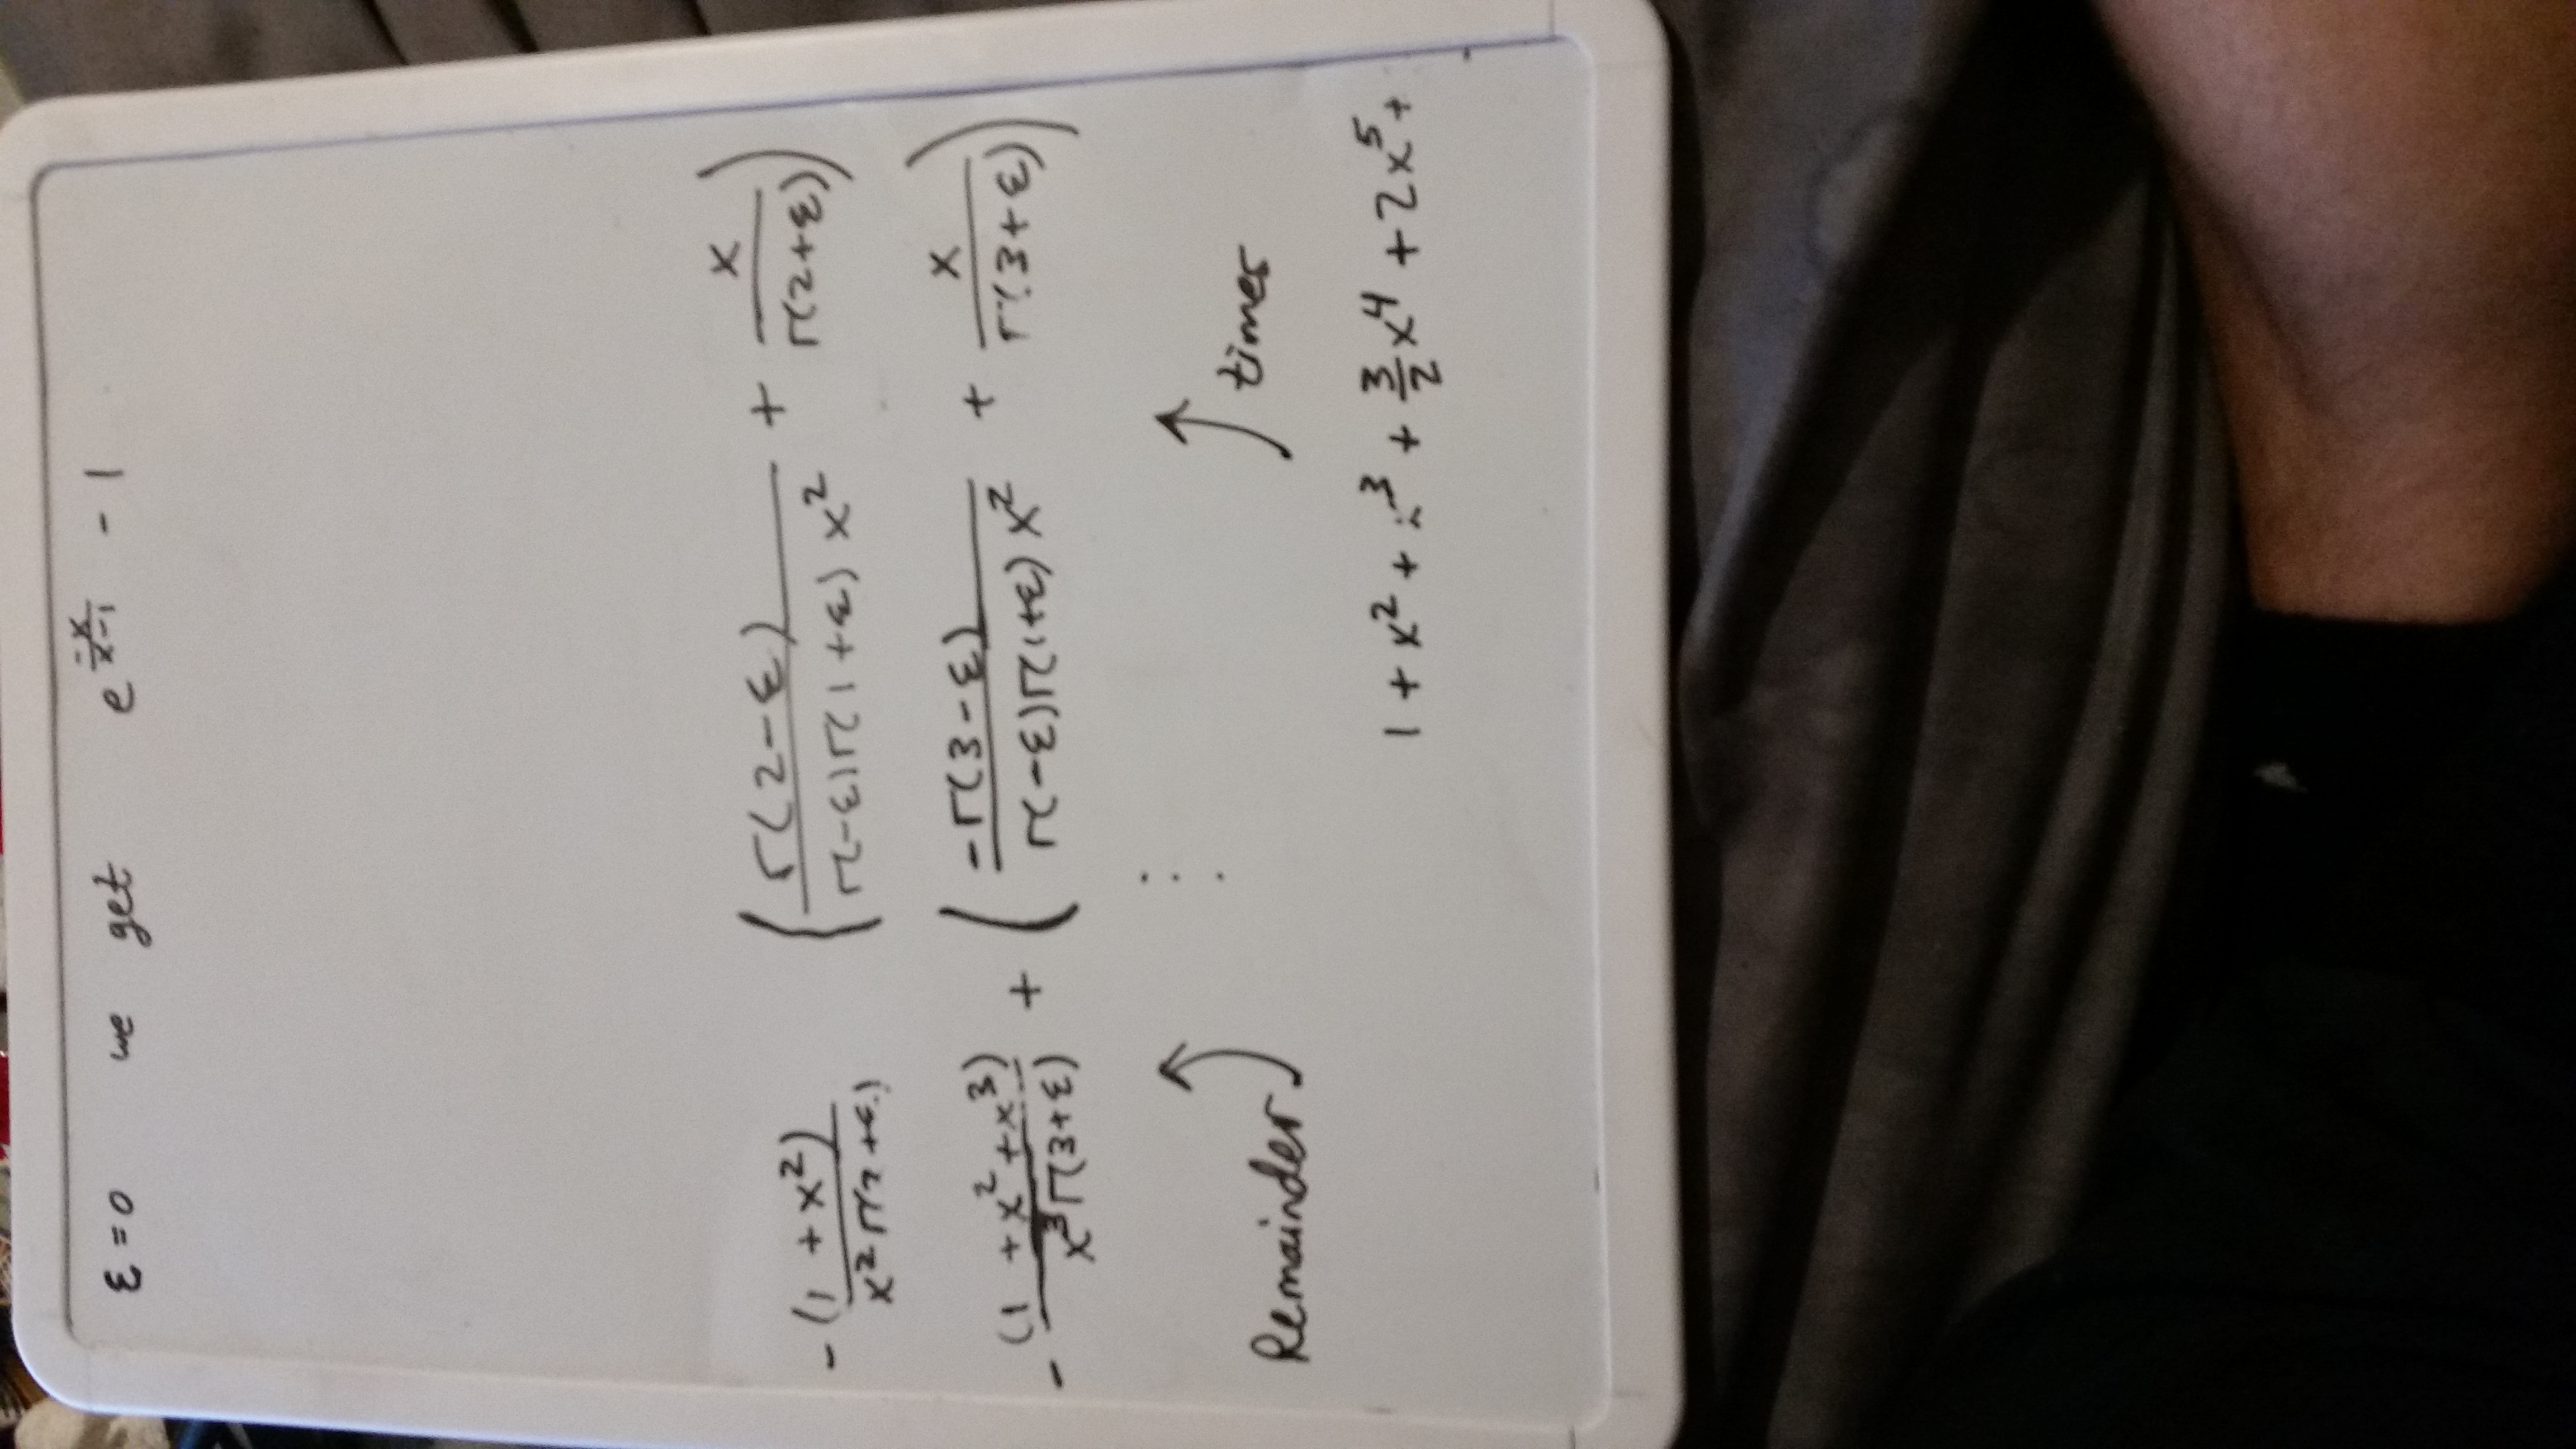 ε = 0 we get e^(-x/(x-1)) - 1
-(1 + x²)/(x² Γ(2+ε)) (Γ(2-ε)/(Γ(-ε)Γ(1+ε) x²) + x/Γ(2+ε))
-(1 + x² + x³)/(x³ Γ(3+ε)) + (-Γ(3-ε)/(Γ(-ε)Γ(1+ε) x²) + x/Γ(3+ε))
⋮
Remainder ↑ ↑ times
1 + x² + x³ + 3/2 x⁴ + 2x⁵ +